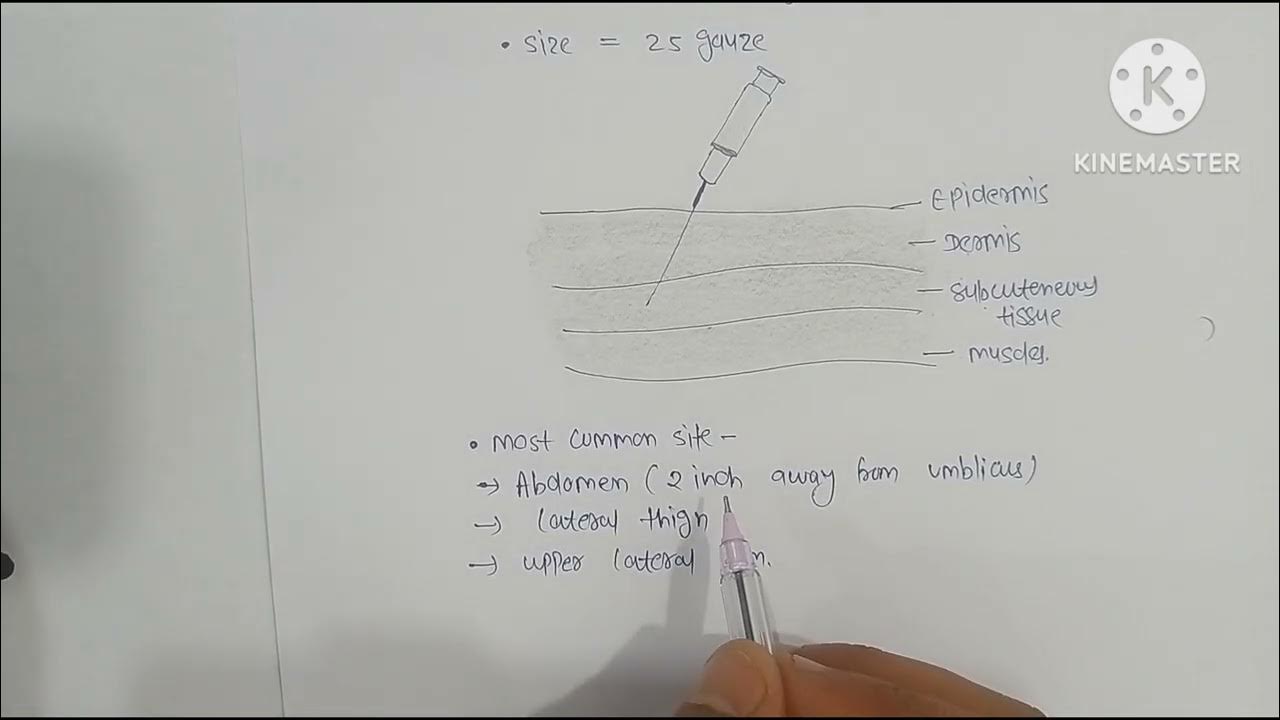 • Size = 25 gauze
K
KINEMASTER
Epidermis
Dermis
Subcuteneous
tissue
muscles.
• most common site –
→ Abdomen (2 inch away from umblicus)
→ lateral thign
→ upper lateral